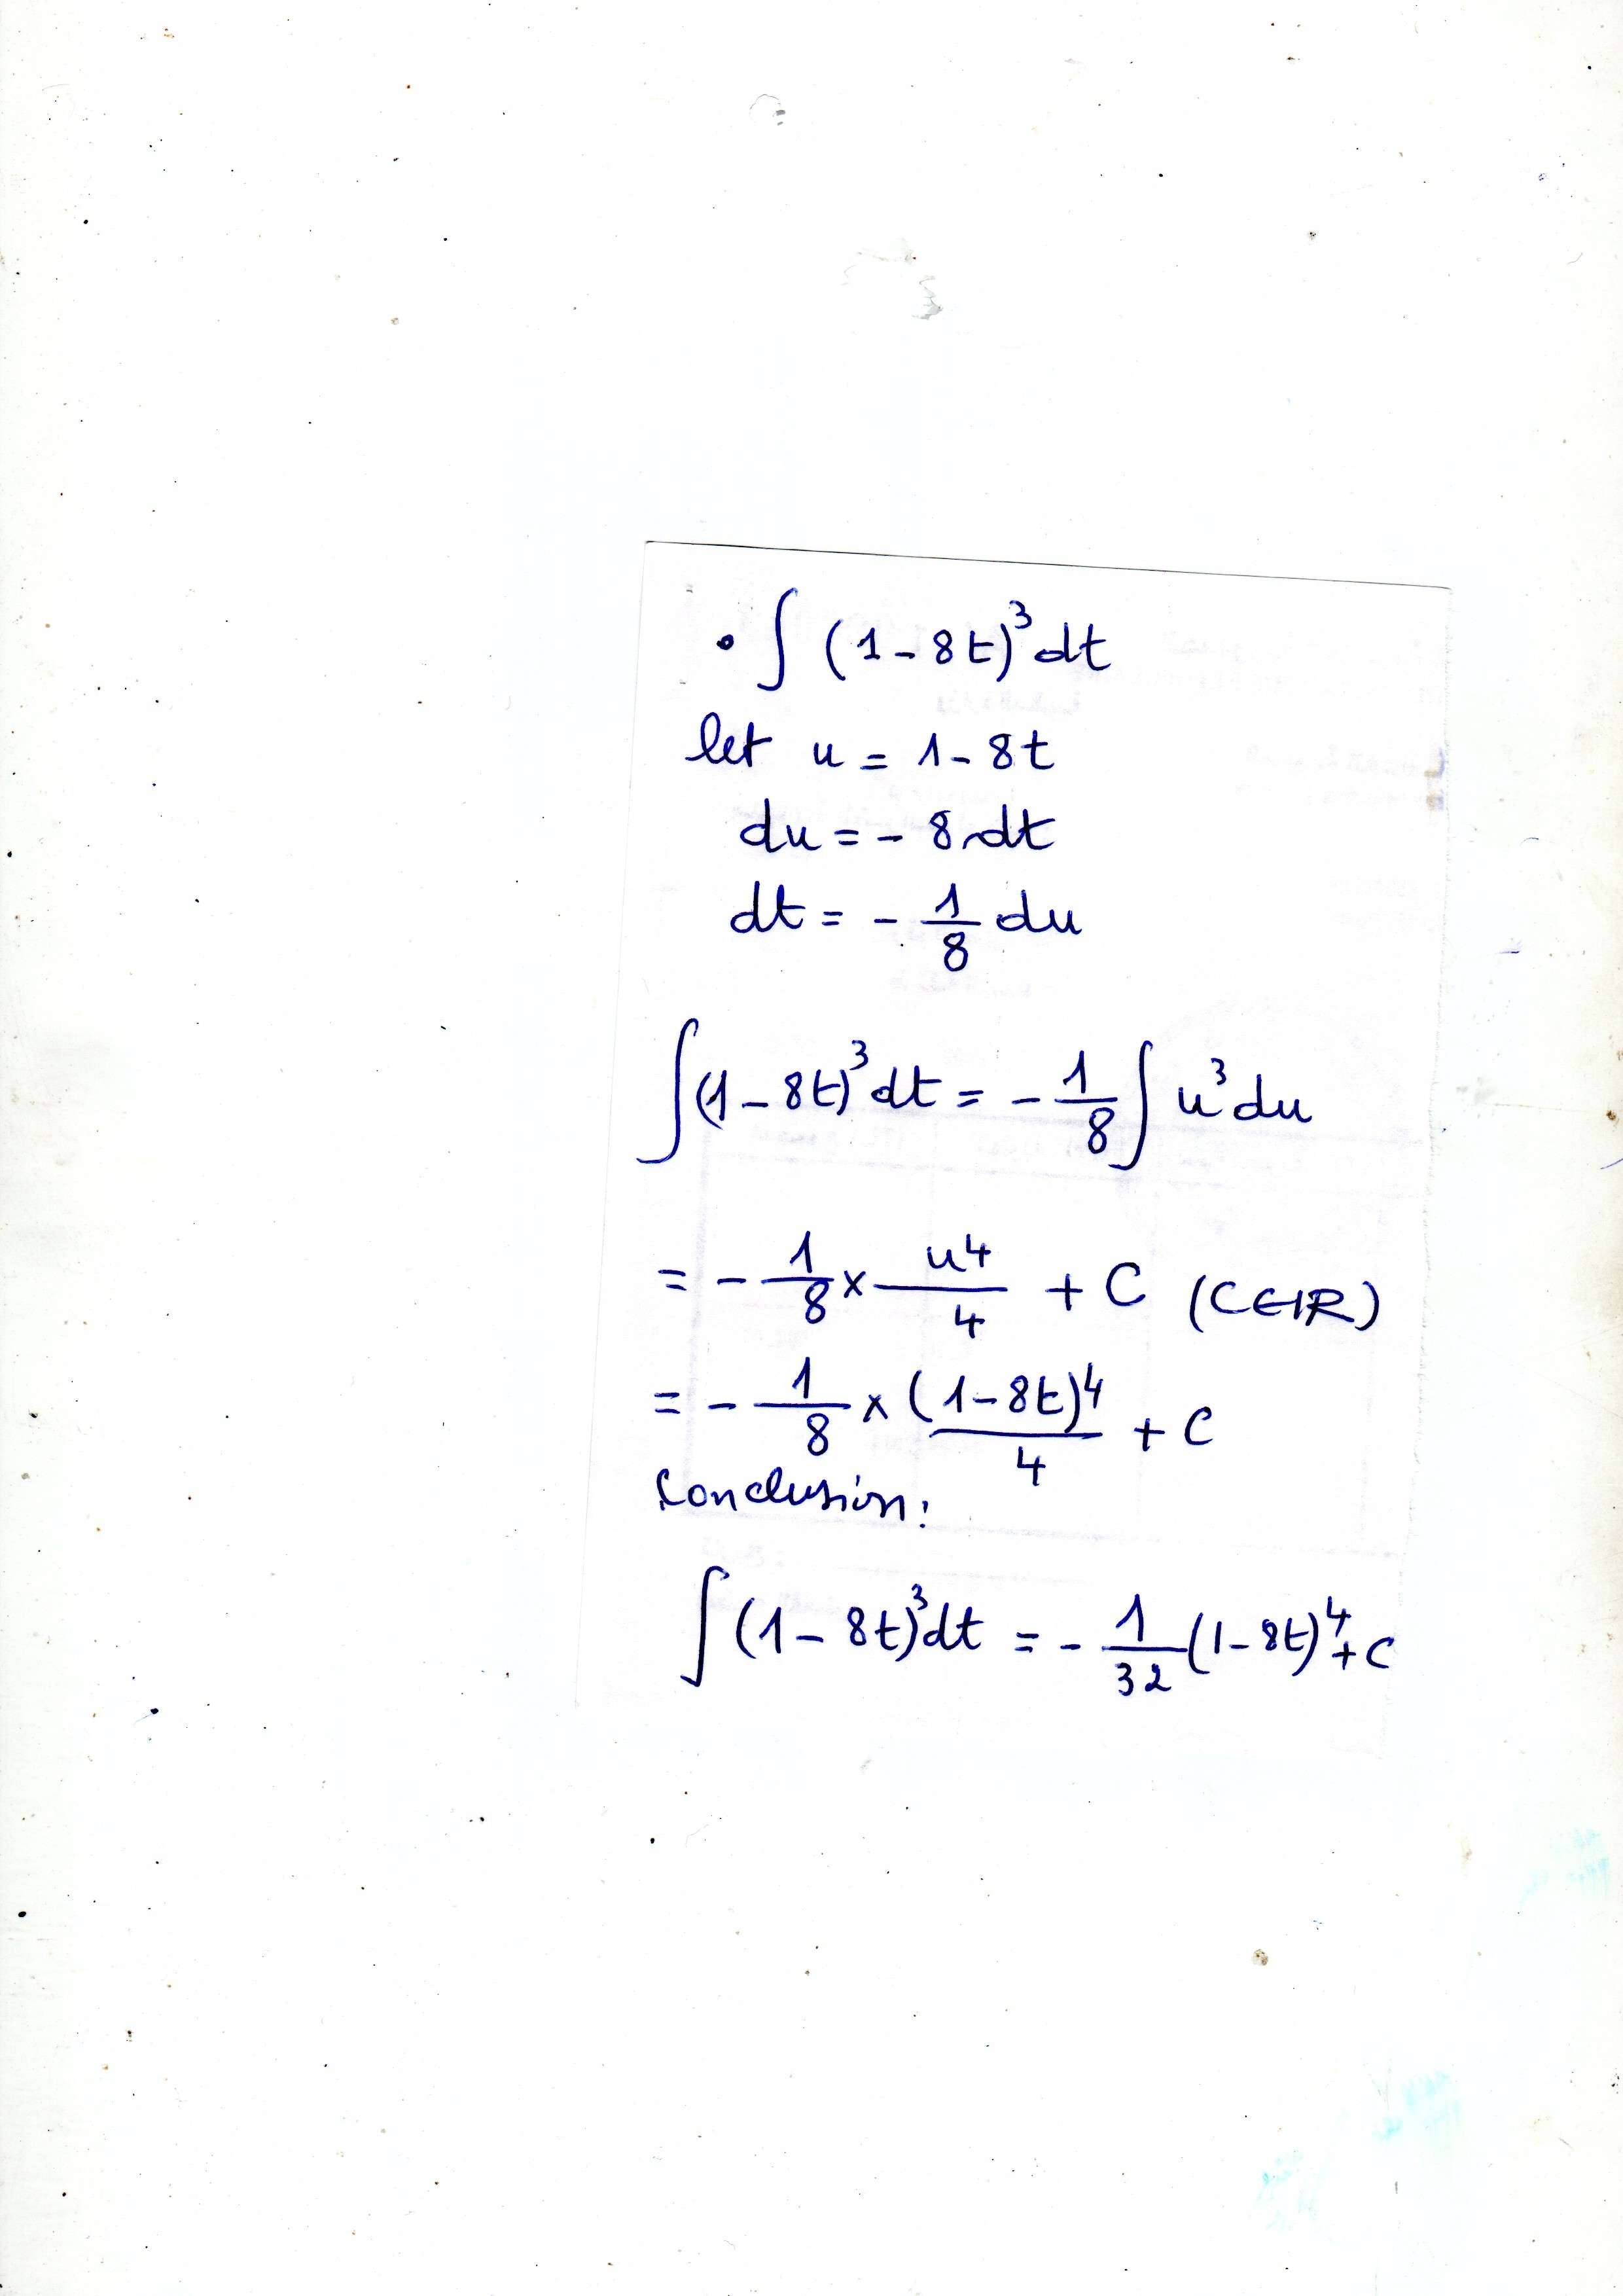 • ∫ (1 - 8t)³ dt
let u = 1 - 8t
du = - 8 dt
dt = - 1/8 du
∫(1 - 8t)³ dt = - 1/8 ∫ u³ du
= - 1/8 × u⁴/4 + C (C∈ℝ)
= - 1/8 × (1-8t)⁴/4 + C
Conclusion:
∫(1 - 8t)³dt = - 1/32 (1-8t)⁴ + C